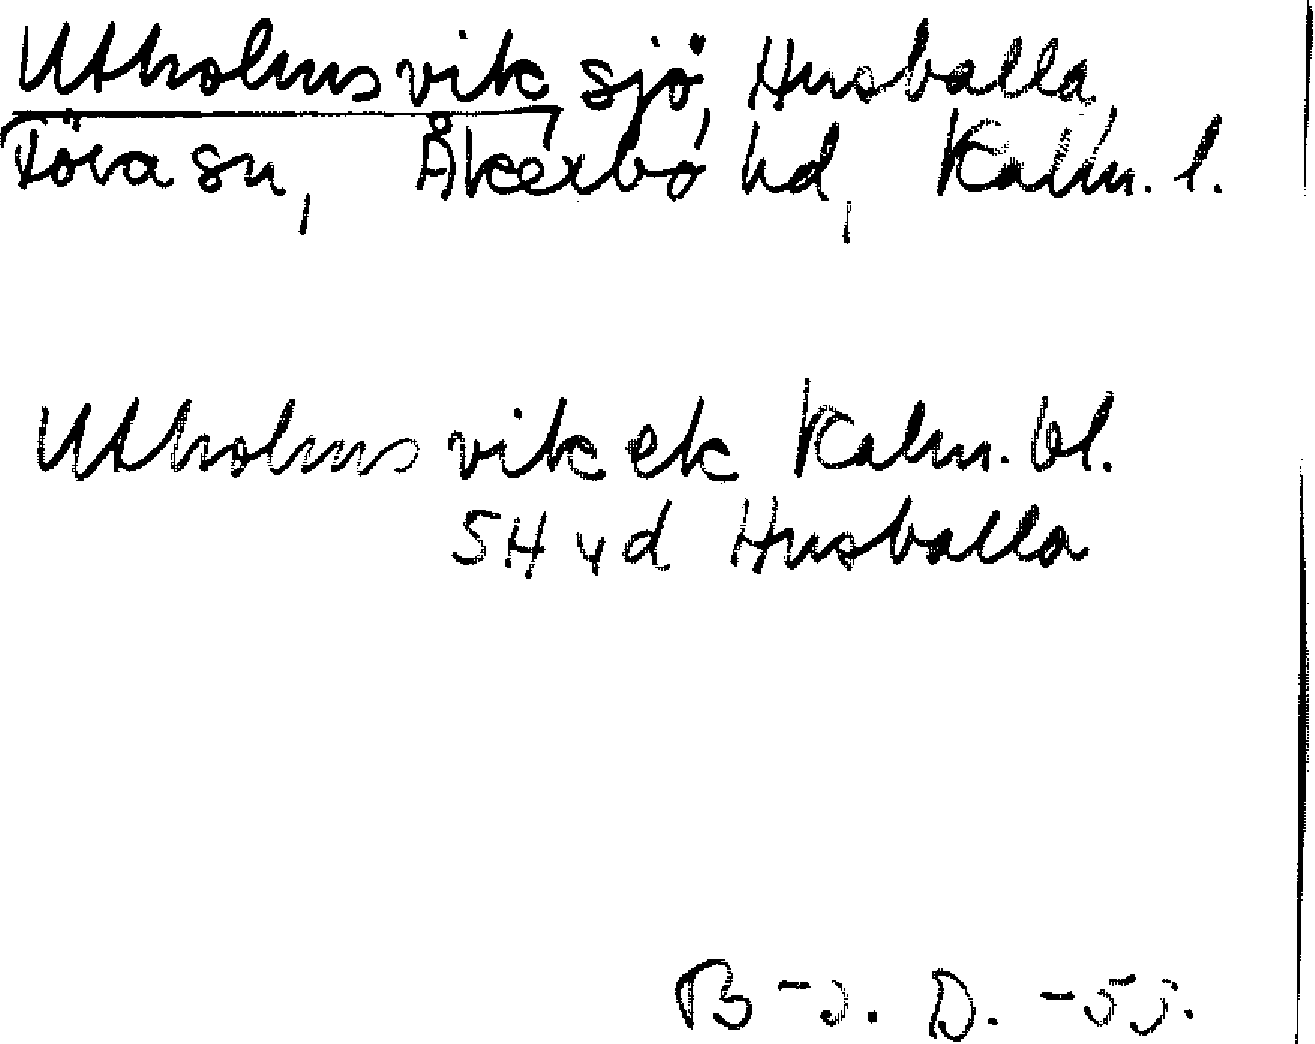 Utholmsvik, sjö, Husvalla,
Föra sn, Åkerbo hd, Kalm. l.
Utholms vik ek Kalm. bl.
SH vd Husvalla
B-J. D. -55.